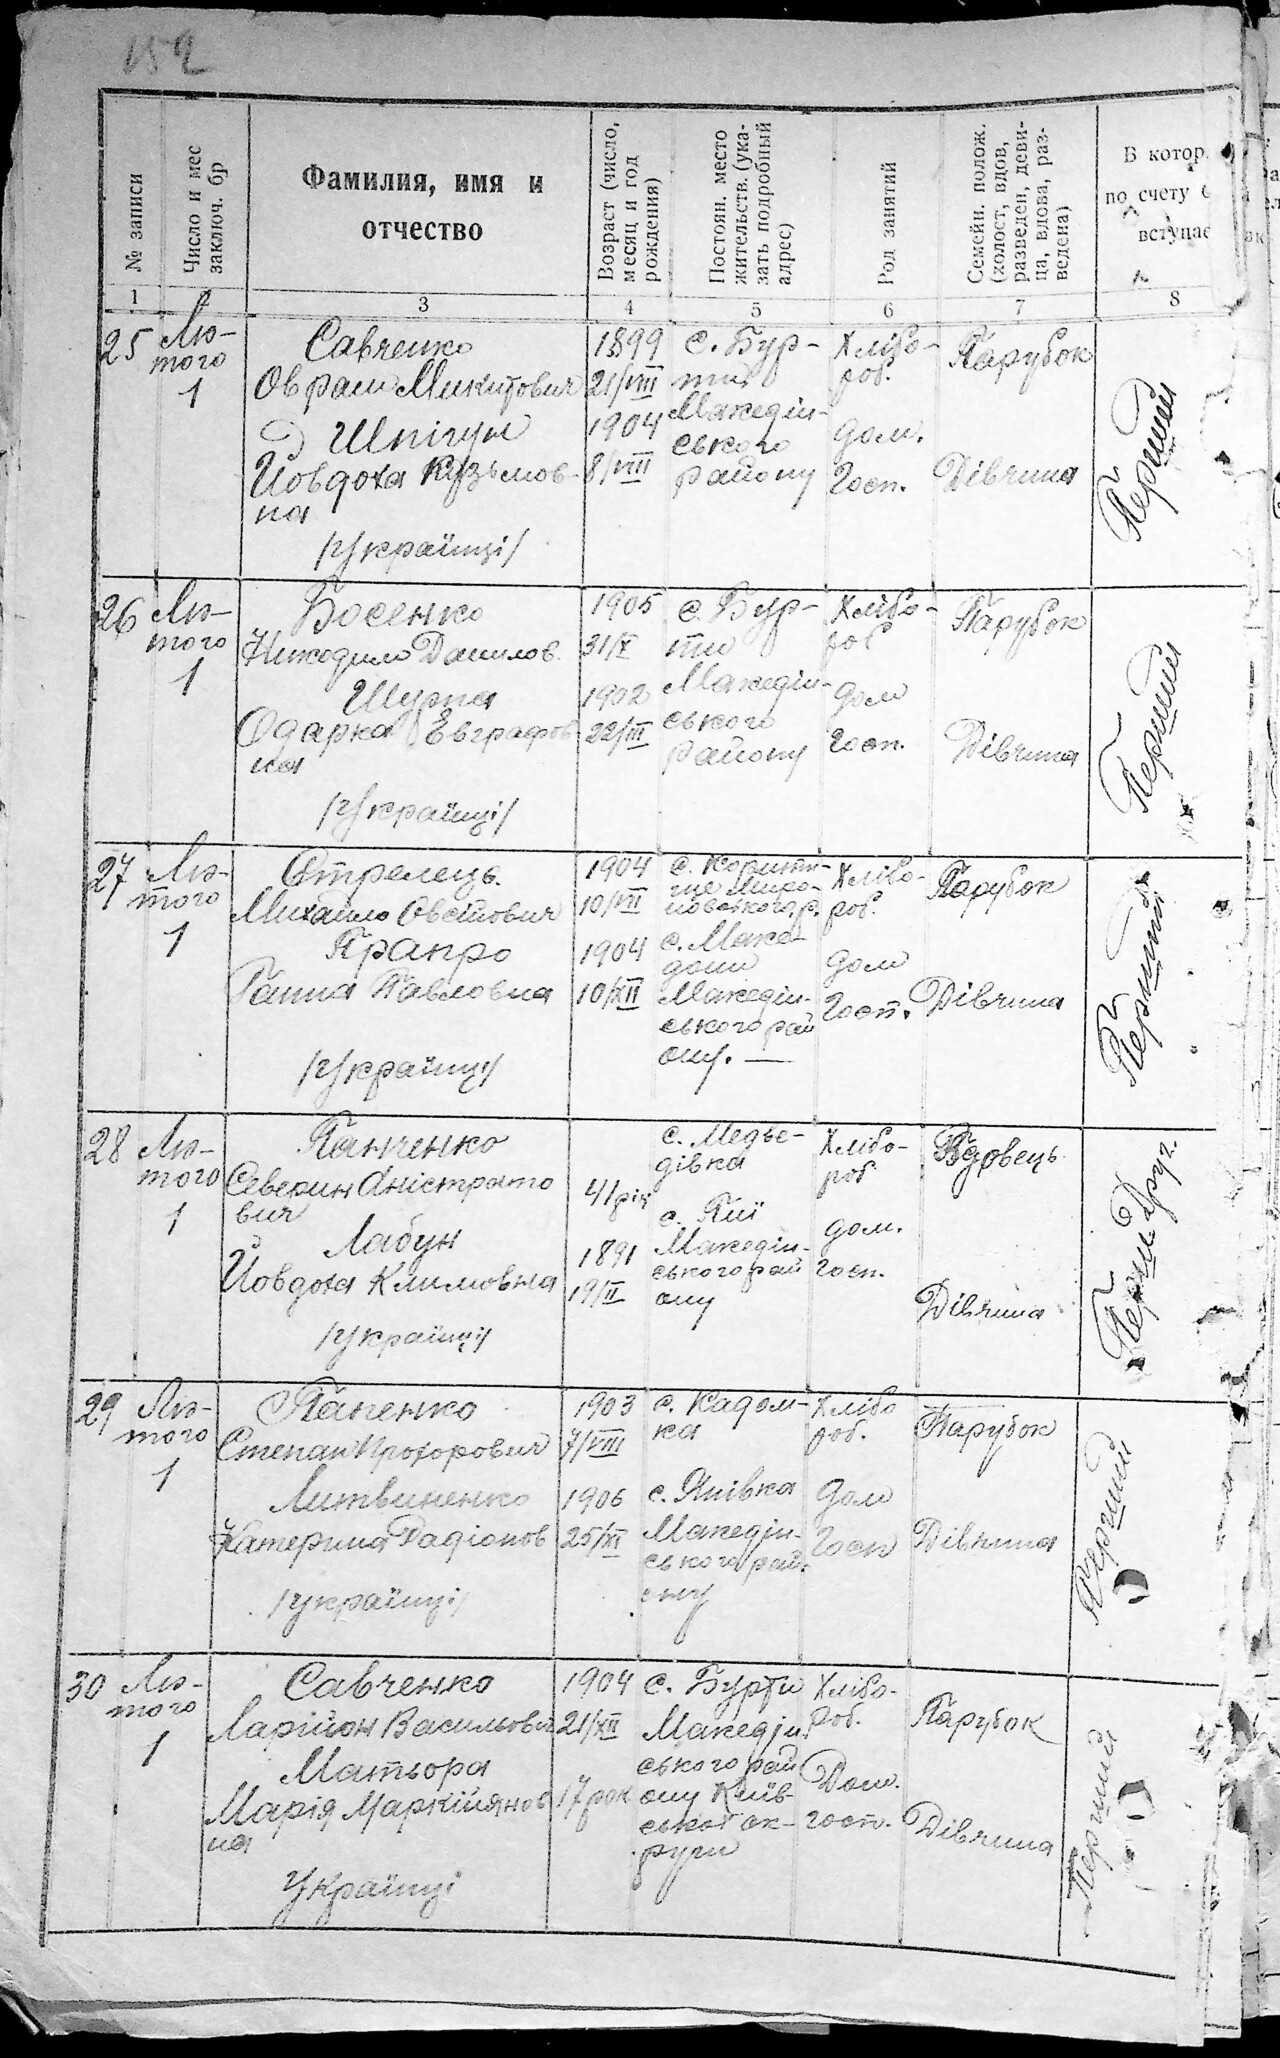 152
№ записи
Число и мес
заключ. бр
Фамилия, имя и
отчество
Возраст (число,
месяц и год
рождения)
Постоян. место
жительств. (ука-
зать подробный
адрес)
Род занятий
Семейн. полож.
(холост, вдов,
разведен, деви-
ца, вдова, раз-
ведена)
В котор.
по счету
вступае
1
3
4
5
6
7
8
25
Лю-
того
1
Савченко
Оврам Микитович
Шпігун
Йовдоха Кузьмов-
на
/Українці/
1899
21/VIII
1904
8/VIII
с. Бур-
ти
Македін-
ського
району
Хлібо-
роб.
дом.
госп.
Парубок
Дівчина
Перший
26
Лю-
того
1
Босенко
Никодим Данилов.
Шурпа
Одарка Евграфов-
на
/Українці/
1905
31/X
1902
22/III
с. Бур-
ти
Македін-
ського
району
Хлібо-
роб
дом
госп.
Парубок
Дівчина
Перший
27
Лю-
того
1
Стрелець.
Михайло Овсійович
Прапро
Ганна Павловна
/Українці/
1904
10/VII
1904
10/XII
с. Корити-
ще Миро-
новського р.
с. Маке-
дони
Македін-
ського рай
ону. —
Хлібо-
роб.
дом
госп.
Парубок
Дівчина
Перший
28
Лю-
того
1
Панченко
Северин Аністрато
вич
Лабун
Йовдоха Климовна
/Українці/
41 рік
1891
19/II
с. Медве-
дівка
с. Пії
Македін-
ського рай
ону
Хлібо-
роб
дом.
госп.
Вдовець
Дівчина
Перш. Друг.
29
Лю-
того
1
Папенко
Степан Прохорович
Литвиненко
Катерина Радіонов
/Українці/
1903
7/VIII
1906
25/XI
с. Кадом-
ка
с. Янівка
Македін-
ського рай-
ону
Хлібо
роб.
дом
госп
Парубок
Дівчина
Перший
30
Лю-
того
1
Савченко
Ларійон Васильович
Матьора
Марія Маркіянов
на
Українці
1904
21/XII
17 рок
с. Бурти
Македін
ського рай
ону Київ-
ської ок-
руги
Хлібо-
роб.
Дом.
госп.
Парубок
Дівчина
Перший